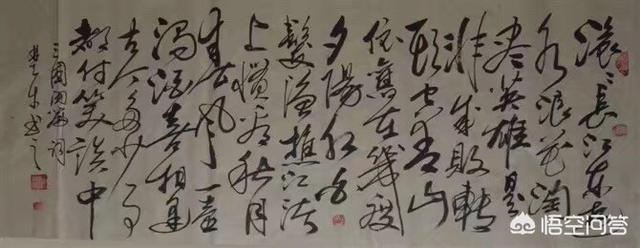 滚〻長江东逝
水浪花淘
尽英雄是
非成敗轉
頭空青山
依舊在幾度
夕陽红白
髮渔樵江渚
上惯看秋月
春风一壶
濁酒喜相逢
古今多少事
都付笑谈中
三國開篇词
书之
悟空问答